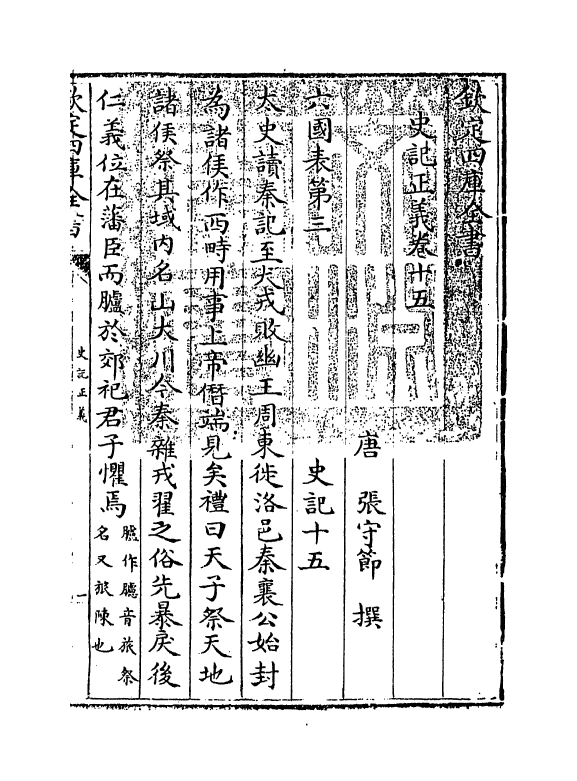 欽定四庫全書
史記正義卷十五
唐 張守節 撰
六國表第三 史記十五
太史讀秦記至犬戎敗幽王周東徙洛邑秦襄公始封
為諸侯作西畤用事上帝僭端見矣禮曰天子祭天地
諸侯祭其域内名山大川今秦雜戎翟之俗先暴戾後
仁義位在藩臣而臚於郊祀君子懼焉 臚作臚音旅祭
名又旅陳也
欽定四庫全書
史記正義
一